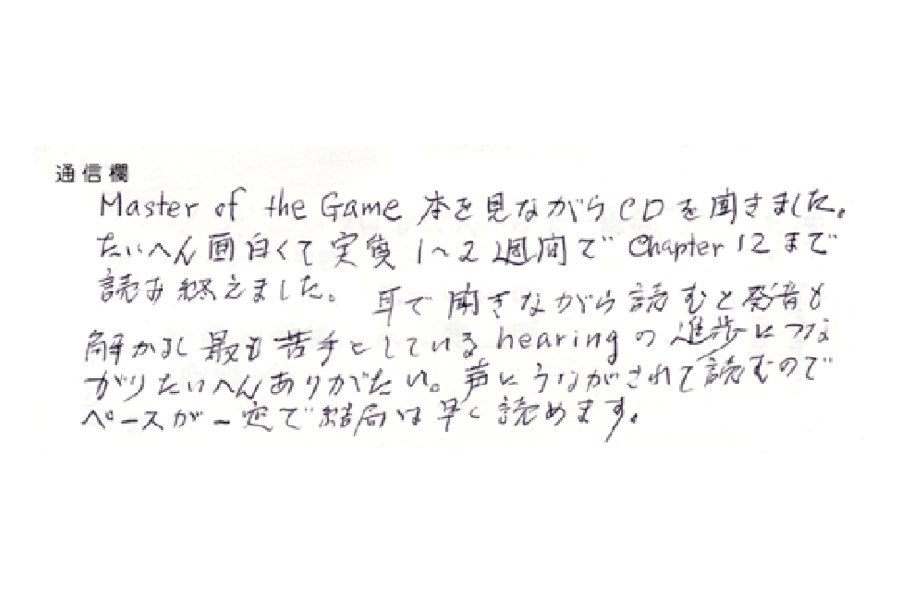 通信欄
Master of the Game 本を見ながらCDを聞きました。
たいへん面白くて実質1〜2週間でChapter 12まで
読み終えました。 耳で聞きながら読むと発音も
解かるし最も苦手としているhearingの進歩につな
がりたいへんありがたい。声にうながされて読むので
ペースが一定で結局は早く読めます。